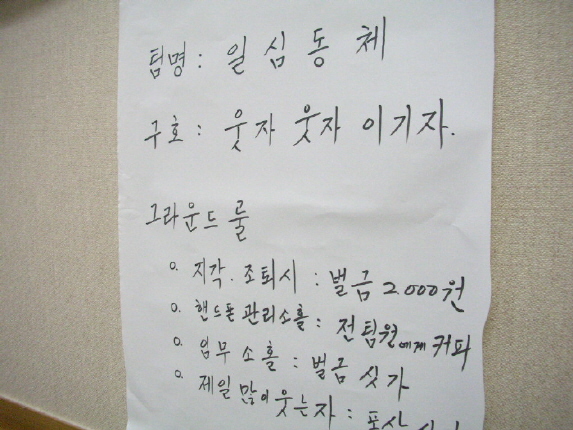 팀명 : 일 심 동 체
구호 : 웃자 웃자 이기자.
그라운드 룰
o. 지각. 조퇴시 : 벌금 2.000원
o. 핸드폰 관리소홀 : 전팀원에게 커피
o. 임무 소홀 : 벌금 싯가
o. 제일 많이 웃는자 : 포상